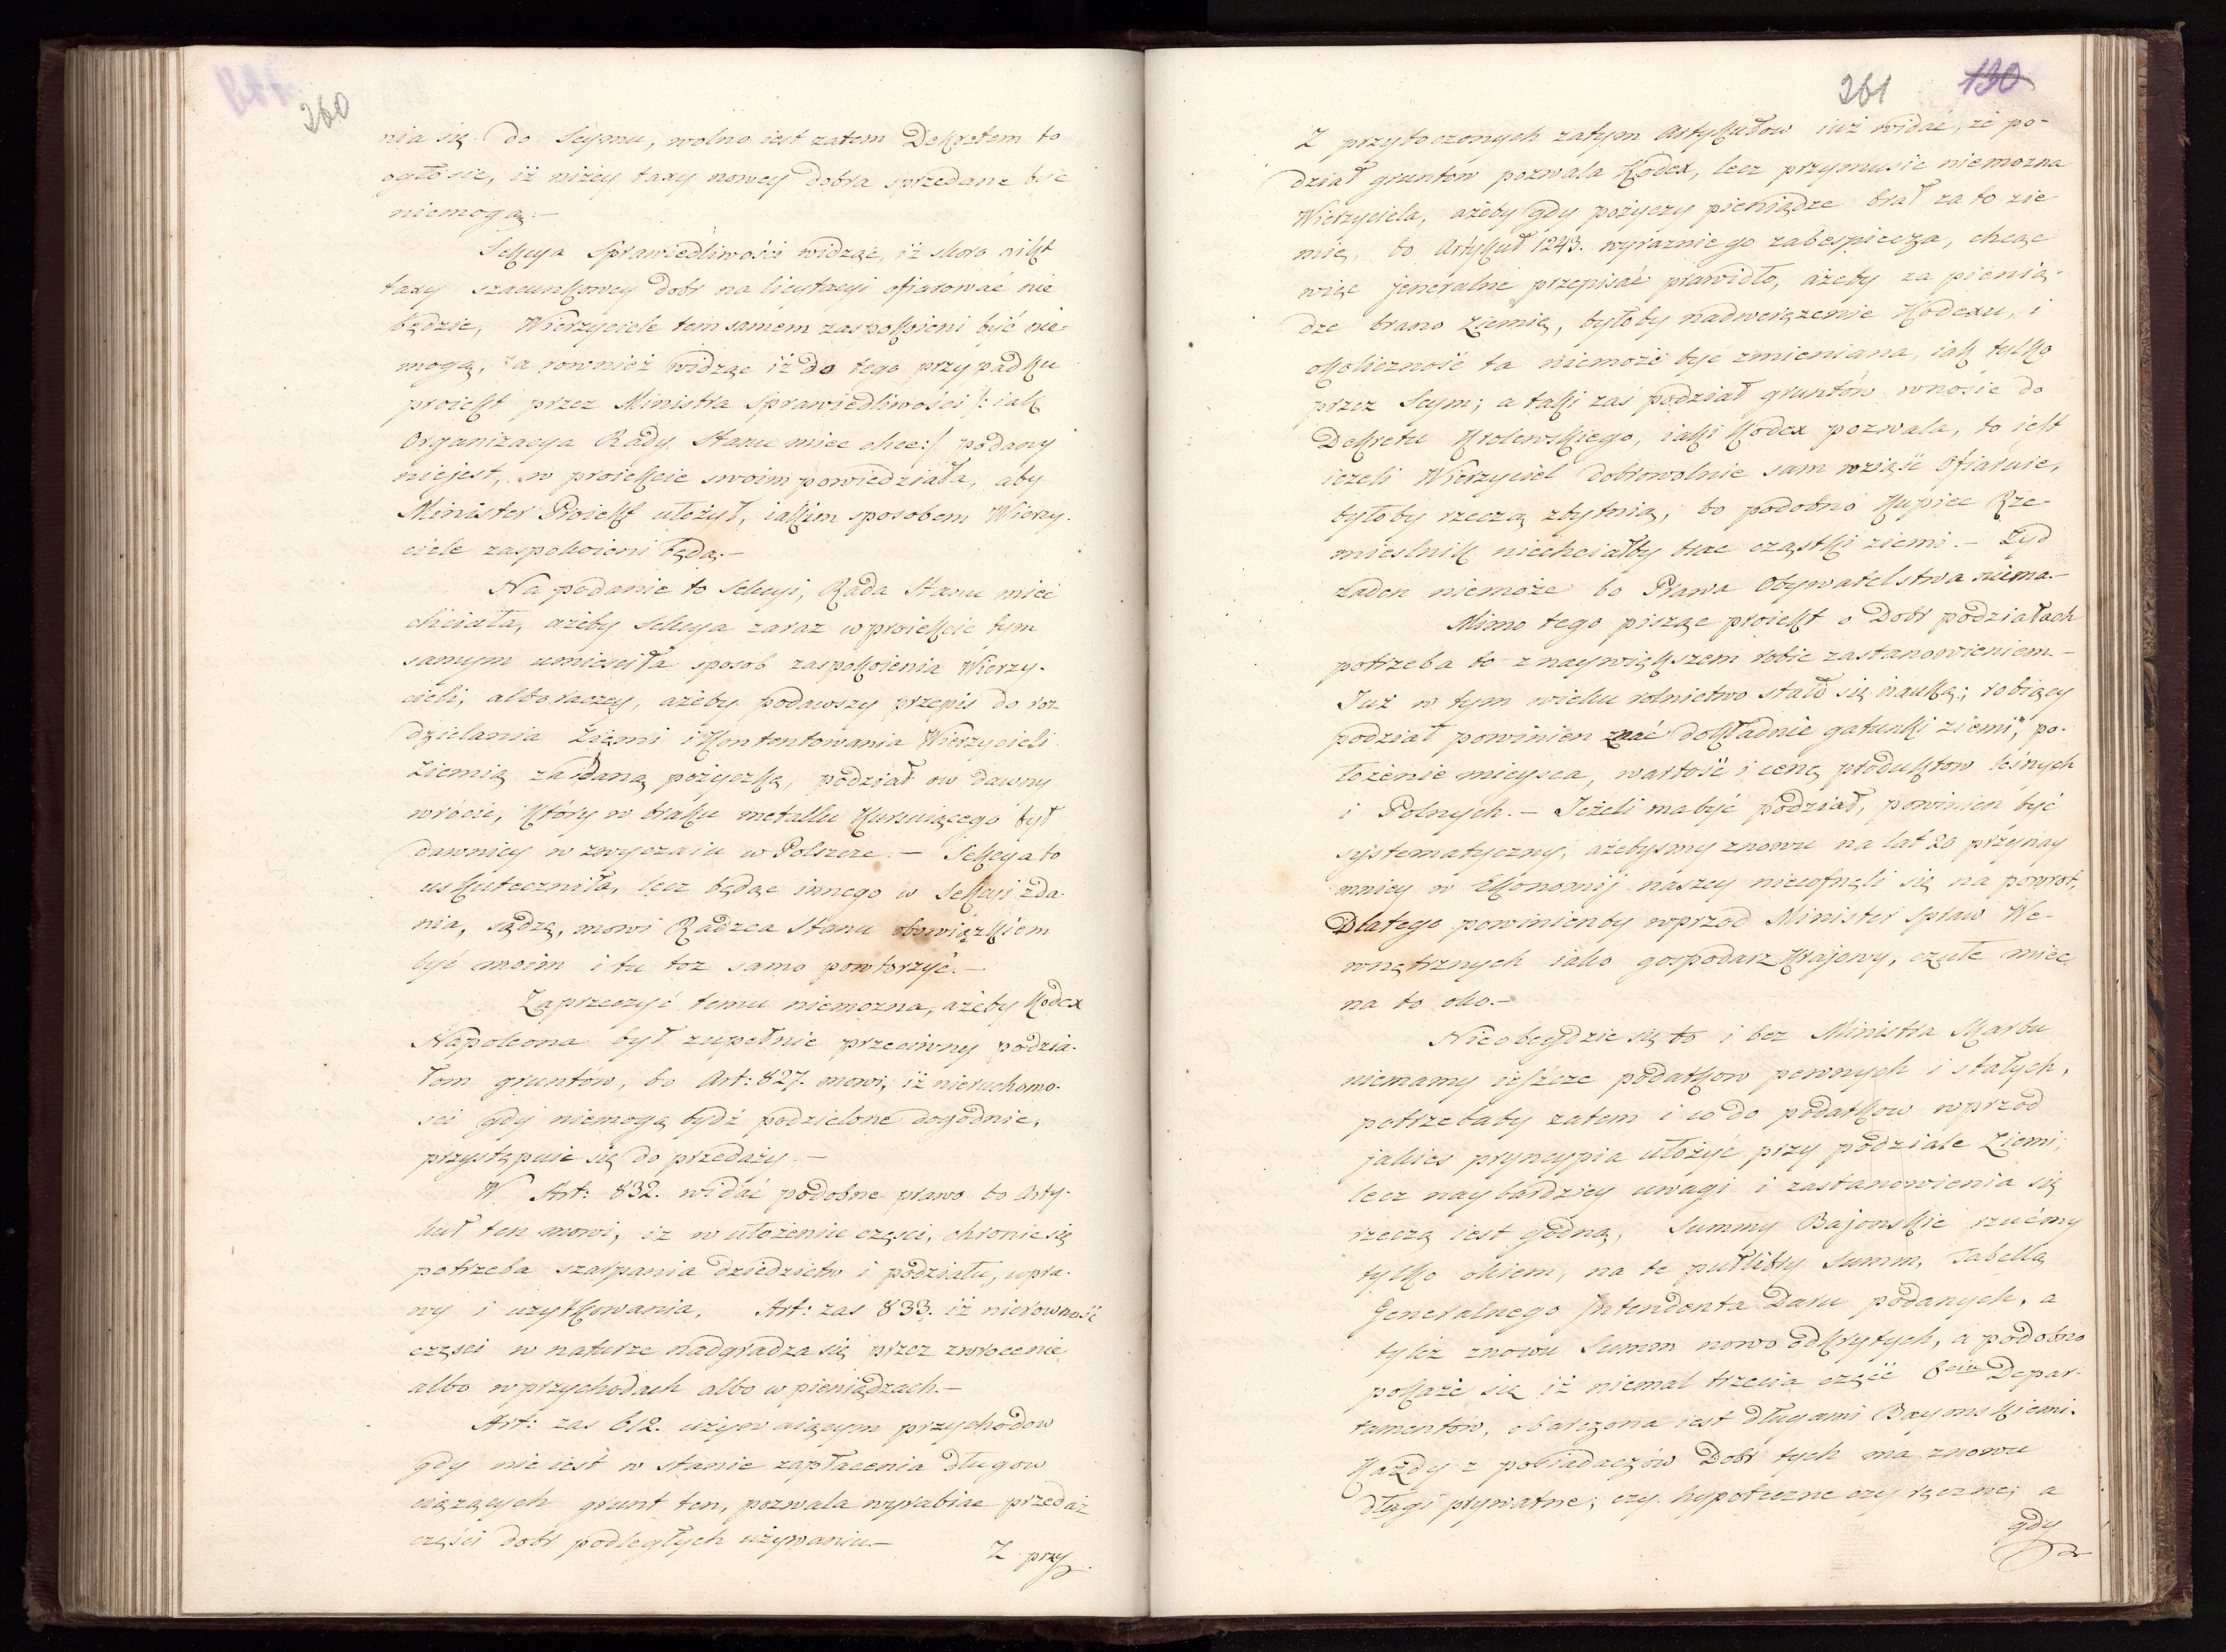 260
nia się do Seymu, wolno iest zatem Dekretem to
ogłosic, iż niżey taxy nowey dobra sprzedane być
niemogą.—
Sekcya Sprawiedliwości widząc, iż skoro nikt
taxy szacunkowey dobr na licytacyi ofiarować nie
będzie, Wierzyciele tem samem zaspokoieni być nie-
mogą, a rownież widząc iż do tego przypadku
proiekt przez Ministra Sprawiedliwości /: iak
Organizacya Rady Stanu miec chce :/ podany
niejest, w proiekcie swoim powiedziała, aby
Minister Proiekt ułożył, iakim sposobem Wierzy-
ciele zaspokoieni będą.—
Na podanie to Sekcyi, Rada Stanu mieć
chciała, ażeby Sekcya zaraz w proiekcie tym
samym umieściła sposob zaspokoienia Wierzy-
cieli, albo raczey, ażeby podawszy przepis do roz
dzielania ziemi i Kontentowania Wierzycieli
Ziemią za daną pożyczkę, podział ow dawny
wrócić, który w braku metallu kursuiącego był
dawniey w zwyczaiu w Polszcze.— Sekcya to
uskuteczniła, lecz będąc innego w Sekcyi zda-
nia, sądzę, mowi Radzca Stanu obowiązkiem
być moim i tu toż samo powtorzyć.—
Zaprzeczyć temu niemozna, ażeby Kodex
Napoleona był zupełnie przeciwny podzia-
łom gruntów, bo Art: 827. mowi, iż nieruchomo-
sci gdy niemogą bydź podzielone dogodnie,
przystępuie się do przedaży.—
W Art: 832. widać podobne prawo bo Arty-
kuł ten mowi, iz w ułożeniu części, chronic się
potrzeba szarpania dziedzictw i podziału, upra-
wy i użytkowania. Art: zas 833. iż nierowność
częsci w naturze nadgradza się przez zwrocenie
albo w przychodach albo w pieniądzach.—
Art: zas 612. używaiącym przychodow
gdy nie iest w stanie zapłacenia długow
ciążących grunt ten, pozwala wyrabiac przedaż
części dobr podległych używaniu.—
Z przy
261 130
Z przytoczonych zatym Artykułow iuż widać, że po-
dział gruntow pozwala Kodex, lecz przymusic niemozna
Wierzyciela, ażeby gdy pożyczy pieniądze brał za to zie
mię, bo Artykuł 1243. wyraznie go zabespiecza, chcąc
więc jeneralne przepisać prawidło, ażeby za pienią-
dze brano Ziemię, byłoby nadwerężenie Kodexu, i
okoliczność ta niemoże być zmieniana, iak tylko
przez Seym; a taki zaś podział gruntów wnosic do
Dekretu Krolewskiego, iaki Kodex pozwala, to iest
ieżeli Wierzyciel dobrowolnie sam wziąść Ofiaruie,
byłoby rzeczą zbytnią, bo podobno Kupiec Rze-
mieslnik niechciałby brac cząstki ziemi.— Żyd
żaden niemoże bo Prawa Obywatelstwa niema.—
Mimo tego pisząc proiekt o Dobr podziałach
potrzeba to z naywiększem robic zastanowieniem.—
Już w tym wieku rolnictwo stało się nauką; robiący
podział powinien znać dokładnie gatunki ziemi, po-
łożenie mieysca, wartość i cenę produktow leśnych
i Polnych.— Jeżeli ma być podział, powinien być
systematyczny, ażebysmy znowu na lat 20 przynay
mniey w Ekonomij naszey niecofnęli się na powrot,
Dlatego powinienby wprzod Minister Spraw We-
wnętrznych iako gospodarz Krajowy, czułe miec
na to oko.—
Nieobeydzie się to i bez Ministra Skarbu
niemamy ieszcze podatkow pewnych i stałych,
potrzebaby zatem i co do podatkow wprzod
jakies pryncypia ułożyć przy podziale Ziemi,
lecz naybardziey uwagi i zastanowienia się
rzeczą iest godną, Summy Bajonskie rzućmy
tylko okiem, na te Summ, Tabellą
Generalnego Intendenta Daru podanych, a
tyleż znowu Summ nowo odkrytych, a podobno
pokaże się iż niemal trzecia część 6ciu Depar-
tamentów, obarczona iest długami Bayonskiemi.
Każdy z posiadaczów Dobr tych ma znowu
dłągi prywatne; czy hypoteczne czy ręczne; a
gdy